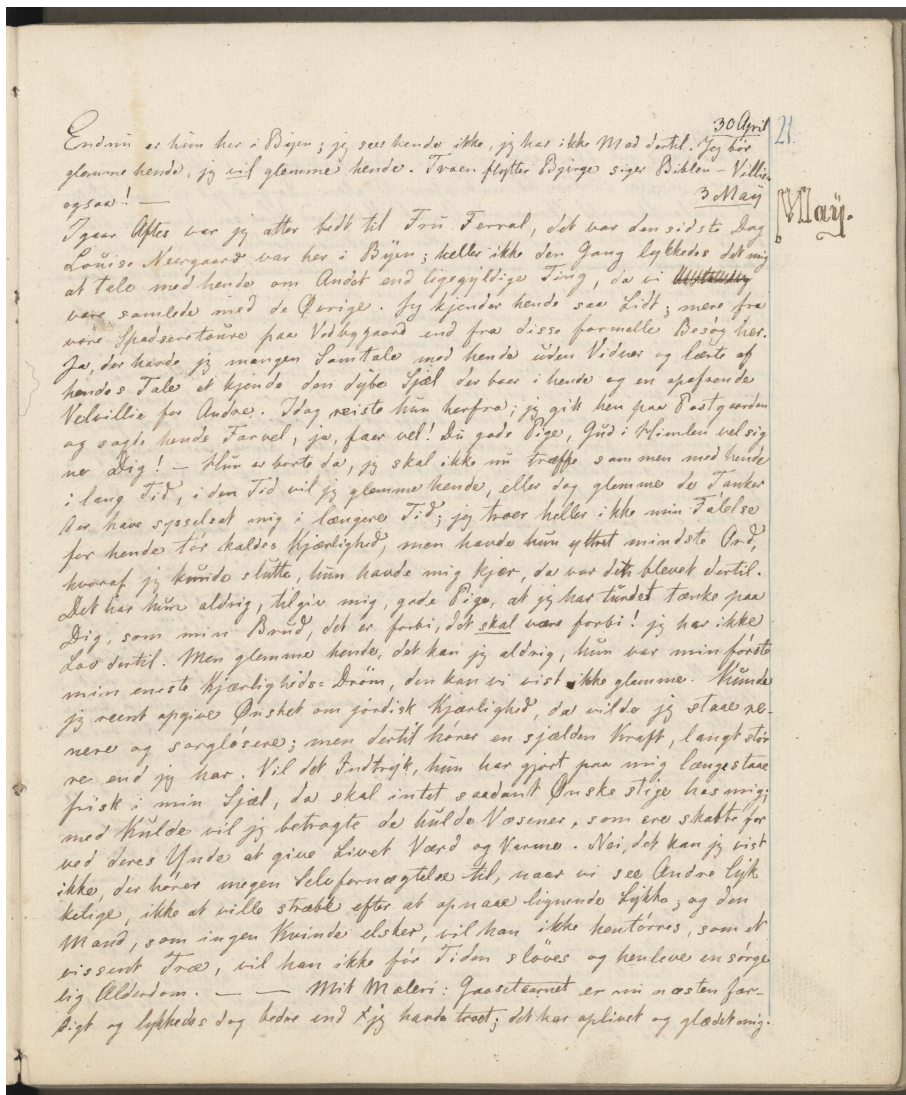 30 April
21
Endnu er hun her i Byen; jeg seer hende ikke, jeg har ikke Mod dertil. Jeg bör
glemme hende, jeg vil glemme hende. Troen flytter Bjerge siger Biblen – Villien
ogsaa! —
3 Maÿ
Maÿ.
Igaar Aftes var jeg atter bedt til Fru Ferral, det var den sidste Dag
Louise Neergaard var her i Byen; heller ikke den Gang lykkedes det mig
at tale med hende om Andet end ligegyldige Ting, da vi
vare samlede med de Øvrige. Jeg kjender hende saa Lidt; mere fra
vore Spadseretoure paa Vedbygaard end fra disse formelle Besög her.
Ja, der havde jeg mangen Samtale med hende uden Vidner og lærte af
hendes Tale at kjende den dybe Sjæl der boer i hende og en opofrende
Velvillie for Andre. Idag reiste hun herfra; jeg gik hen paa Postgaarden
og sagde hende Farvel, ja, faer vel! Du gode Pige, Gud i Himlen velsig
ner Dig! – Hun er borte da, jeg skal ikke nu træffe sammen med hende
i lang Tid, i den Tid vil jeg glemme hende, eller dog glemme de Tanker
der have sysselsat mig i længere Tid; jeg troer heller ikke min Fölelse
for hende tör kaldes Kjærlighed, men havde hun yttret mindste Ord,
hvoraf jeg kunde slutte, hun havde mig kjær, da var det blevet dertil.
Det har hun aldrig, tilgiv mig, gode Pige, at jeg har turdet tænke paa
Dig, som min Brud, det er forbi, det skal være forbi! jeg har ikke
Lov dertil. Men glemme hende, det kan jeg aldrig, hun var min förste
min eneste Kjærligheds=Dröm, den kan vi vist ikke glemme. Kunde
jeg reent opgive Ønsket om jordisk Kjærlighed, da vilde jeg staae re-
nere og sorglösere; men dertil hörer en sjælden Kraft, langt stör
re end jeg har. Vil det Indtryk, hun har gjort paa mig længe staae
frisk i min Sjæl, da skal intet saadant Ønske stige hos mig;
med Kulde vil jeg betragte de hulde Væsener, som ere skabte for
ved deres Ynde at give Livet Værd og Varme. Nei, det kan jeg vist
ikke, der hörer megen Selvfornægtelse til, naar vi see Andre lyk
kelige, ikke at ville stræbe efter at opnaae lignende Lykke; og den
Mand, som ingen Kvinde elsker, vil han ikke hentörres, som et
vissent Træ, vil han ikke för Tiden slöves og henleve en sörge
lig Alderdom. — — Mit Maleri: Gaasetaarnet er nu næsten fær-
digt og lykkedes dog bedre end jeg havde troet; det har oplivet og glædet mig.